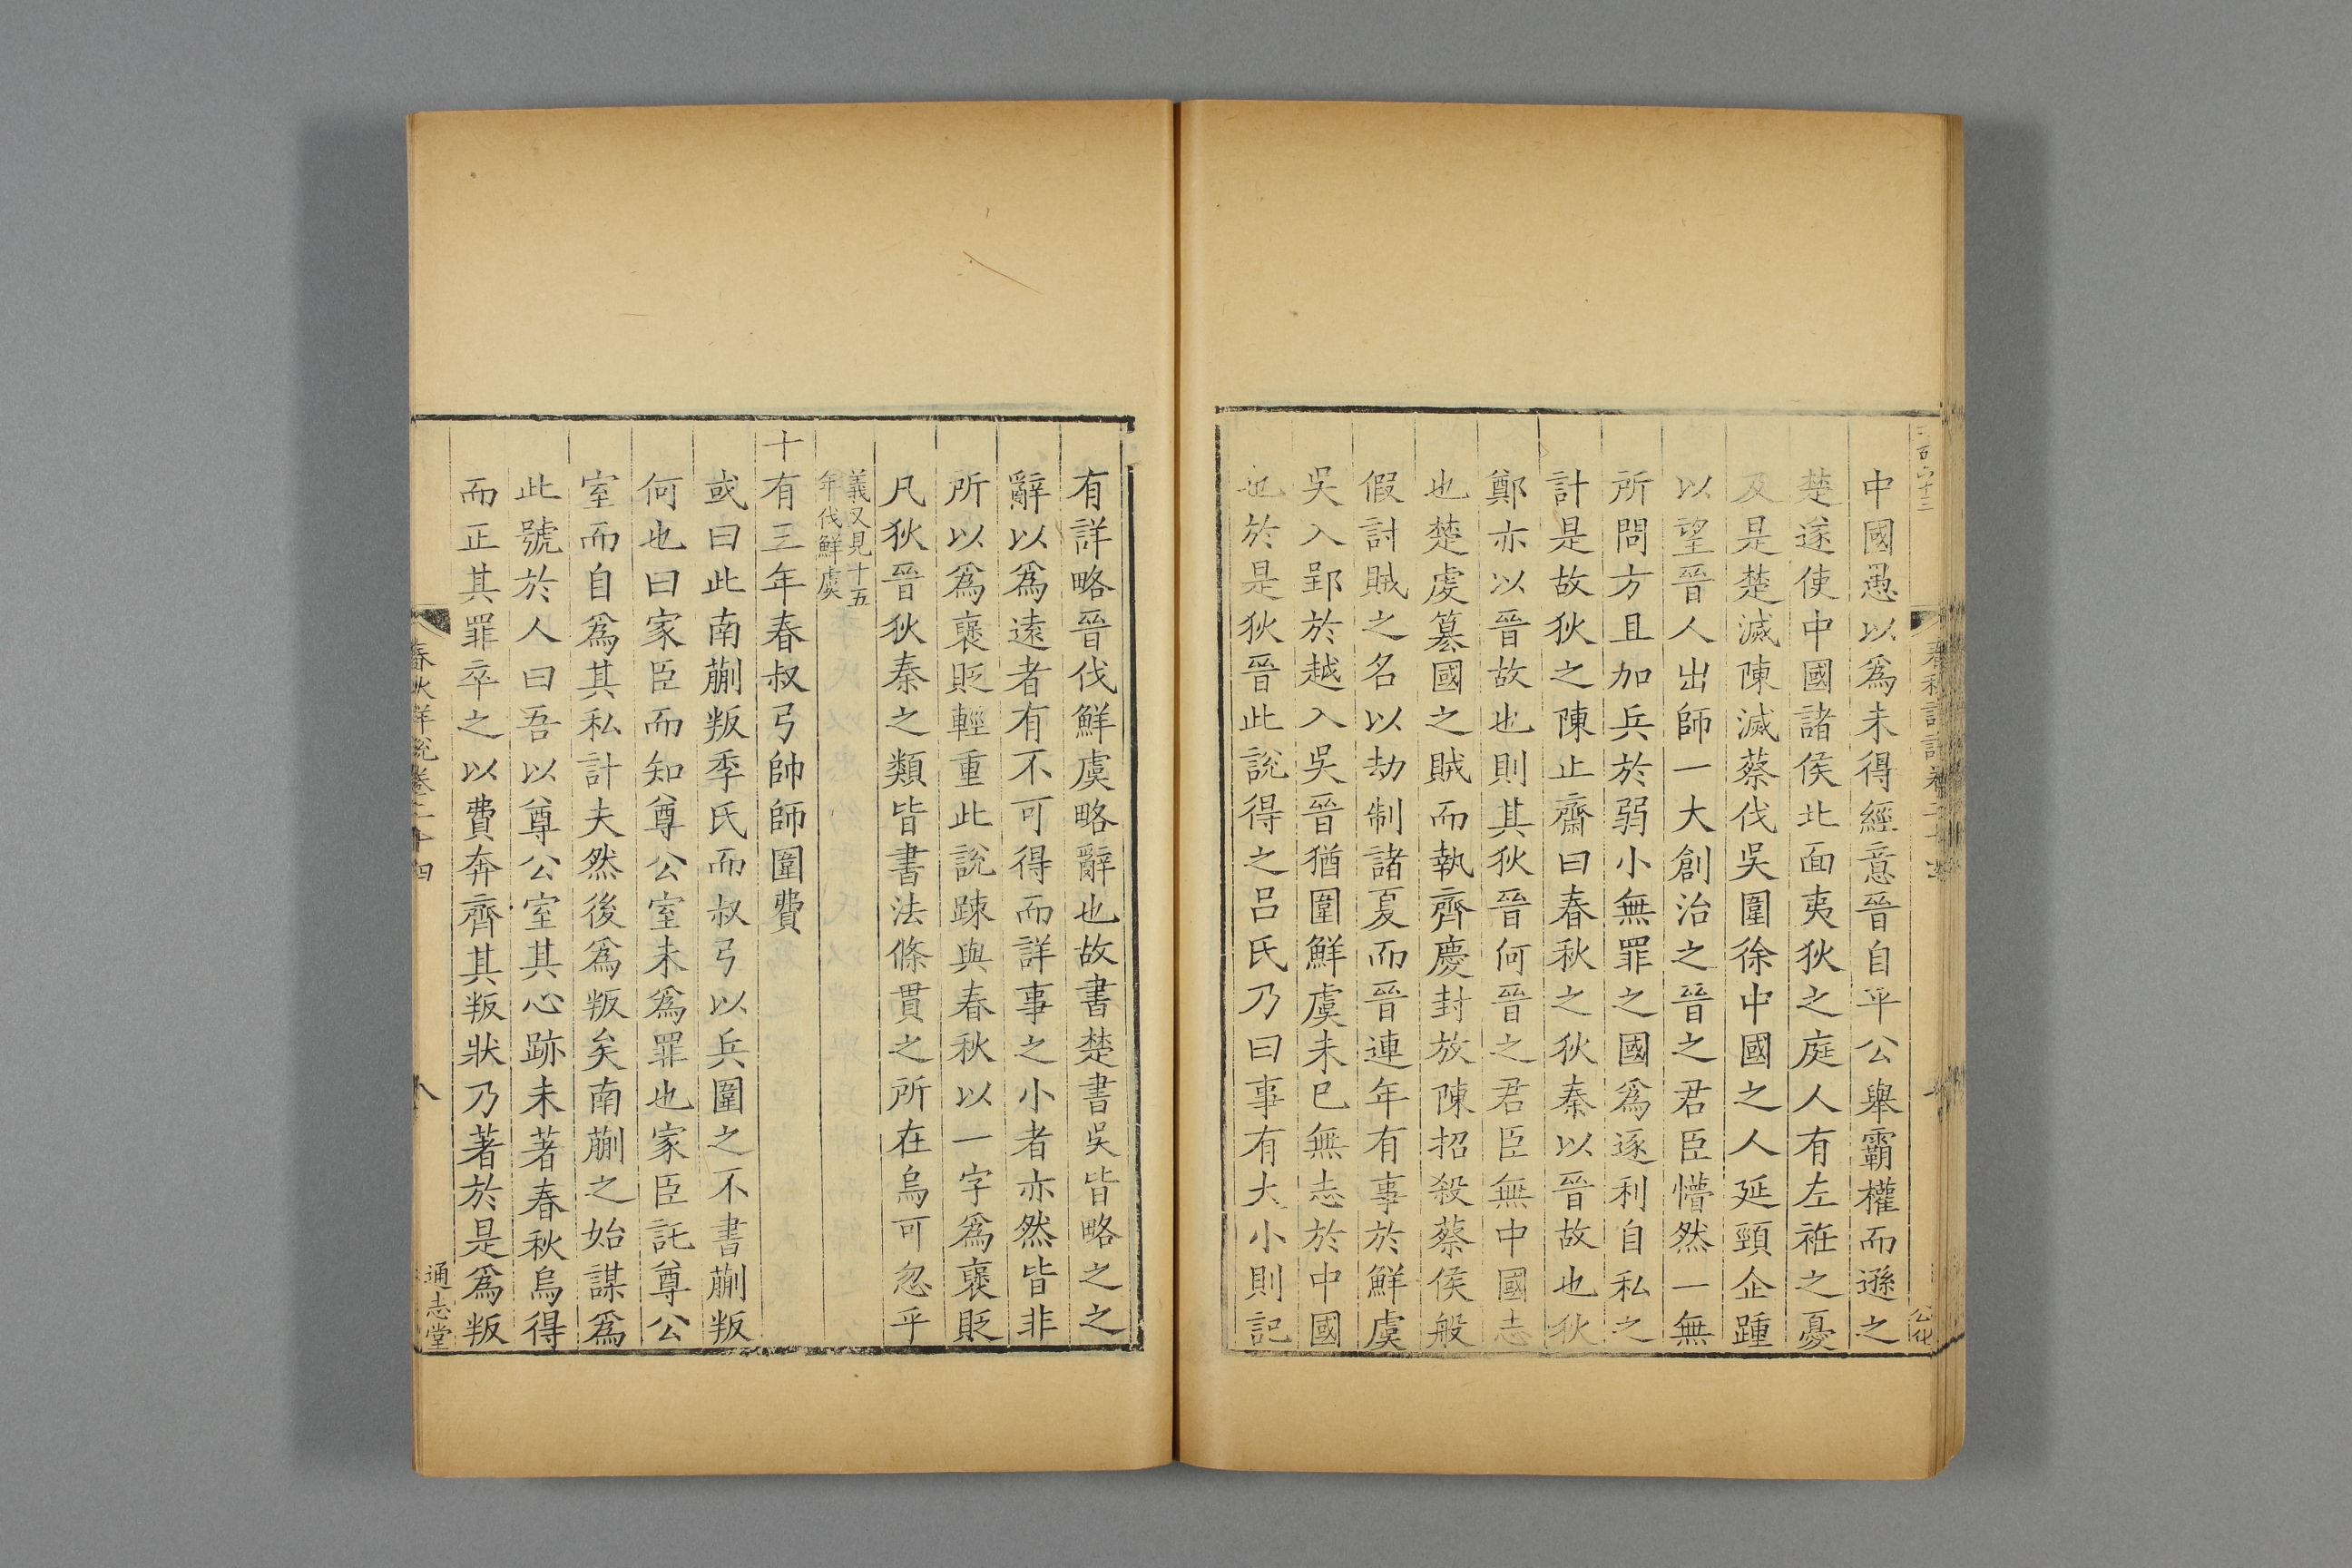 中國愚以爲未得經意晉自平公舉霸權而遜之
楚遂使中國諸侯北面夷狄之庭人有左袵之憂
及是楚滅陳滅蔡伐吳圍徐中國之人延頸企踵
以望晉人出師一大創治之晉之君臣懵然一無
所問方且加兵於弱小無罪之國爲逐利自私之
計是故狄之陳止齋曰春秋之狄秦以晉故也狄
鄭亦以晉故也則其狄晉何晉之君臣無中國志
也楚虔簒國之賊而執齊慶封放陳招殺蔡侯般
假討賊之名以劫制諸夏而晉連年有事於鮮虞
吳入郢於越入吳晉猶圍鮮虞未已無志於中國
也於是狄晉此說得之呂氏乃曰事有大小則記
有詳略晉伐鮮虞略辭也故書楚書吳皆略之之
辭以爲遠者有不可得而詳事之小者亦然皆非
所以爲褒貶輕重此說踈與春秋以一字爲褒貶
凡狄晉狄秦之類皆書法條貫之所在烏可忽乎
義又見十五
年伐鮮虞
十有三年春叔弓帥師圍費
或曰此南蒯叛季氏而叔弓以兵圍之不書蒯叛
何也曰家臣而知尊公室未爲罪也家臣託尊公
室而自爲其私計夫然後爲叛矣南蒯之始謀爲
此號於人曰吾以尊公室其心跡未著春秋烏得
而正其罪卒之以費奔齊其叛狀乃著於是爲叛
春秋詳說卷二十四
八
通志堂